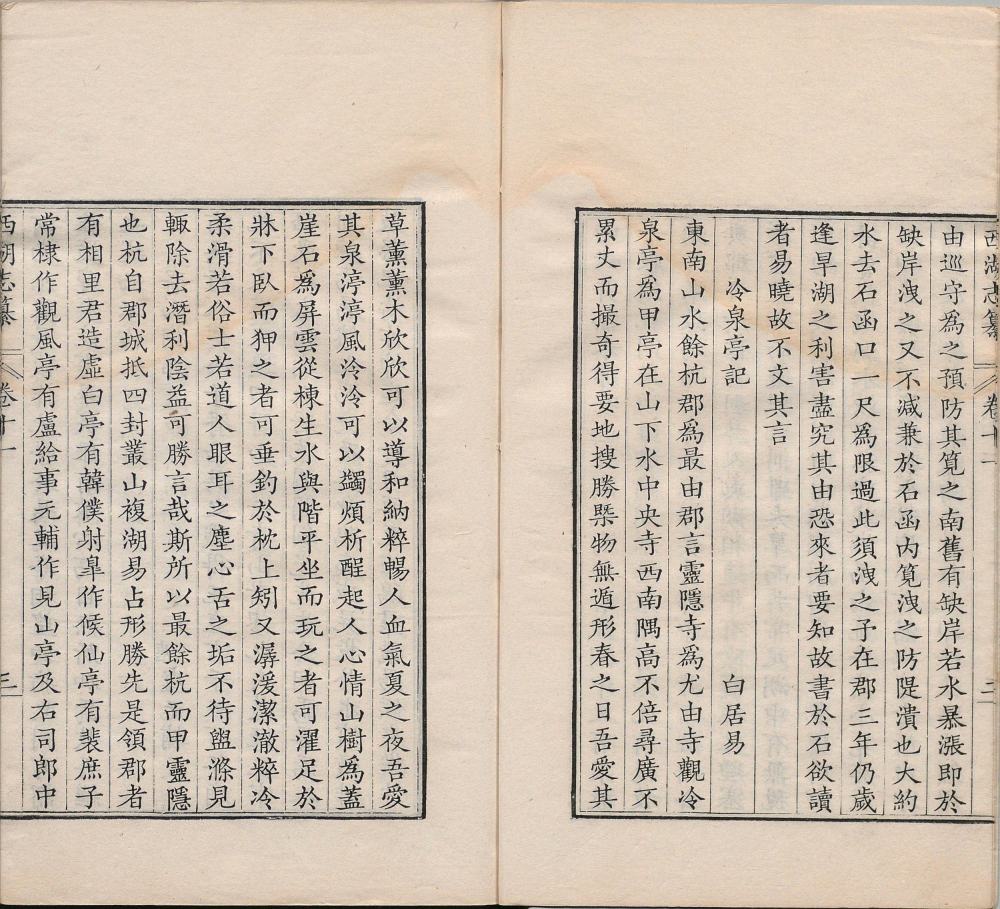 西湖志纂 卷十一 二
由巡守為之預防其筧之南舊有缺岸若水暴漲即於
缺岸洩之又不減兼於石函內筧洩之防隄潰也大約
水去石函口一尺為限過此須洩之予在郡三年仍歲
逢旱湖之利害盡究其由恐來者要知故書於石欲讀
者易曉故不文其言
冷泉亭記 白居易
東南山水餘杭郡為最由郡言靈隱寺為尤由寺觀冷
泉亭為甲亭在山下水中央寺西南隅高不倍尋廣不
累丈而撮奇得要地搜勝槩物無遁形春之日吾愛其
草薰薰木欣欣可以導和納粹暢人血氣夏之夜吾愛
其泉渟渟風泠泠可以蠲煩析酲起人心情山樹為蓋
崖石為屏雲從棟生水與階平坐而玩之者可濯足於
牀下臥而狎之者可垂釣於枕上矧又潺湲潔澈粹冷
柔滑若俗士若道人眼耳之塵心舌之垢不待盥滌見
輙除去潛利陰益可勝言哉斯所以最餘杭而甲靈隱
也杭自郡城抵四封叢山複湖易占形勝先是領郡者
有相里君造虛白亭有韓僕射臯作候仙亭有裴庶子
常棣作觀風亭有盧給事元輔作見山亭及右司郎中
西湖志纂 卷十一 三